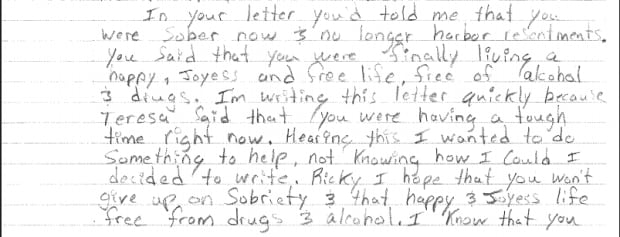 In your letter you'd told me that you
were Sober now & no longer harbor resentments.
You Said that you were finally living a
happy, Joyess and free life, free of alcahol
& drugs. Im writing this letter quickly because
Teresa Said that you were having a tough
time right now. Hearing this I wanted to do
Something to help, not Knowing how I Could I
decided to write. Ricky I hope that you won't
give up on Sobriety & that happy & Joyess life
free from drugs & alcohol. I Know that you